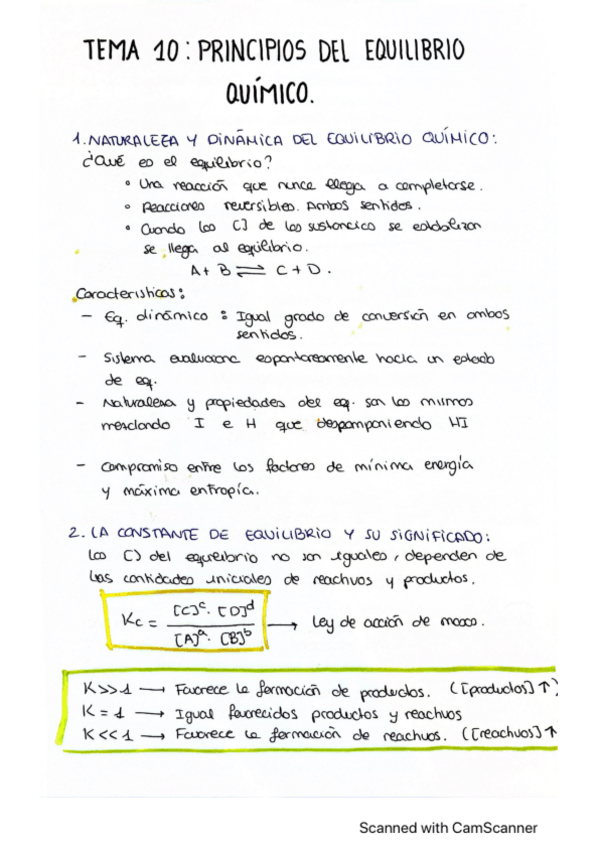 TEMA 10: PRINCIPIOS DEL EQUILIBRIO
QUÍMICO.
1. NATURALEZA Y DINÁMICA DEL EQUILIBRIO QUÍMICO:
¿Qué es el equilibrio?
° Una reacción que nunca llega a completarse.
° Reacciones reversibles. Ambos sentidos.
° Cuando las [] de las sustancias se estabilizan
se llega al equilibrio.
A + B ⇌ C + D.
Características:
- Eq. dinámico: Igual grado de conversión en ambos
sentidos.
- Sistema evoluciona espontáneamente hacia un estado
de eq.
- Naturaleza y propiedades del eq. son las mismas
mezclando I e H que descomponiendo HI
- Compromiso entre los factores de mínima energía
y máxima entropía.
2. LA CONSTANTE DE EQUILIBRIO Y SU SIGNIFICADO:
Las [] del equilibrio no son iguales, dependen de
las cantidades iniciales de reactivos y productos.
Kc = [C]^c · [D]^d / [A]^a · [B]^b → Ley de acción de masas.
K >> 1 → Favorece la formación de productos. ([productos] ↑)
K = 1 → Igual favorecidos productos y reactivos
K << 1 → Favorece la formación de reactivos. ([reactivos] ↑
Scanned with CamScanner